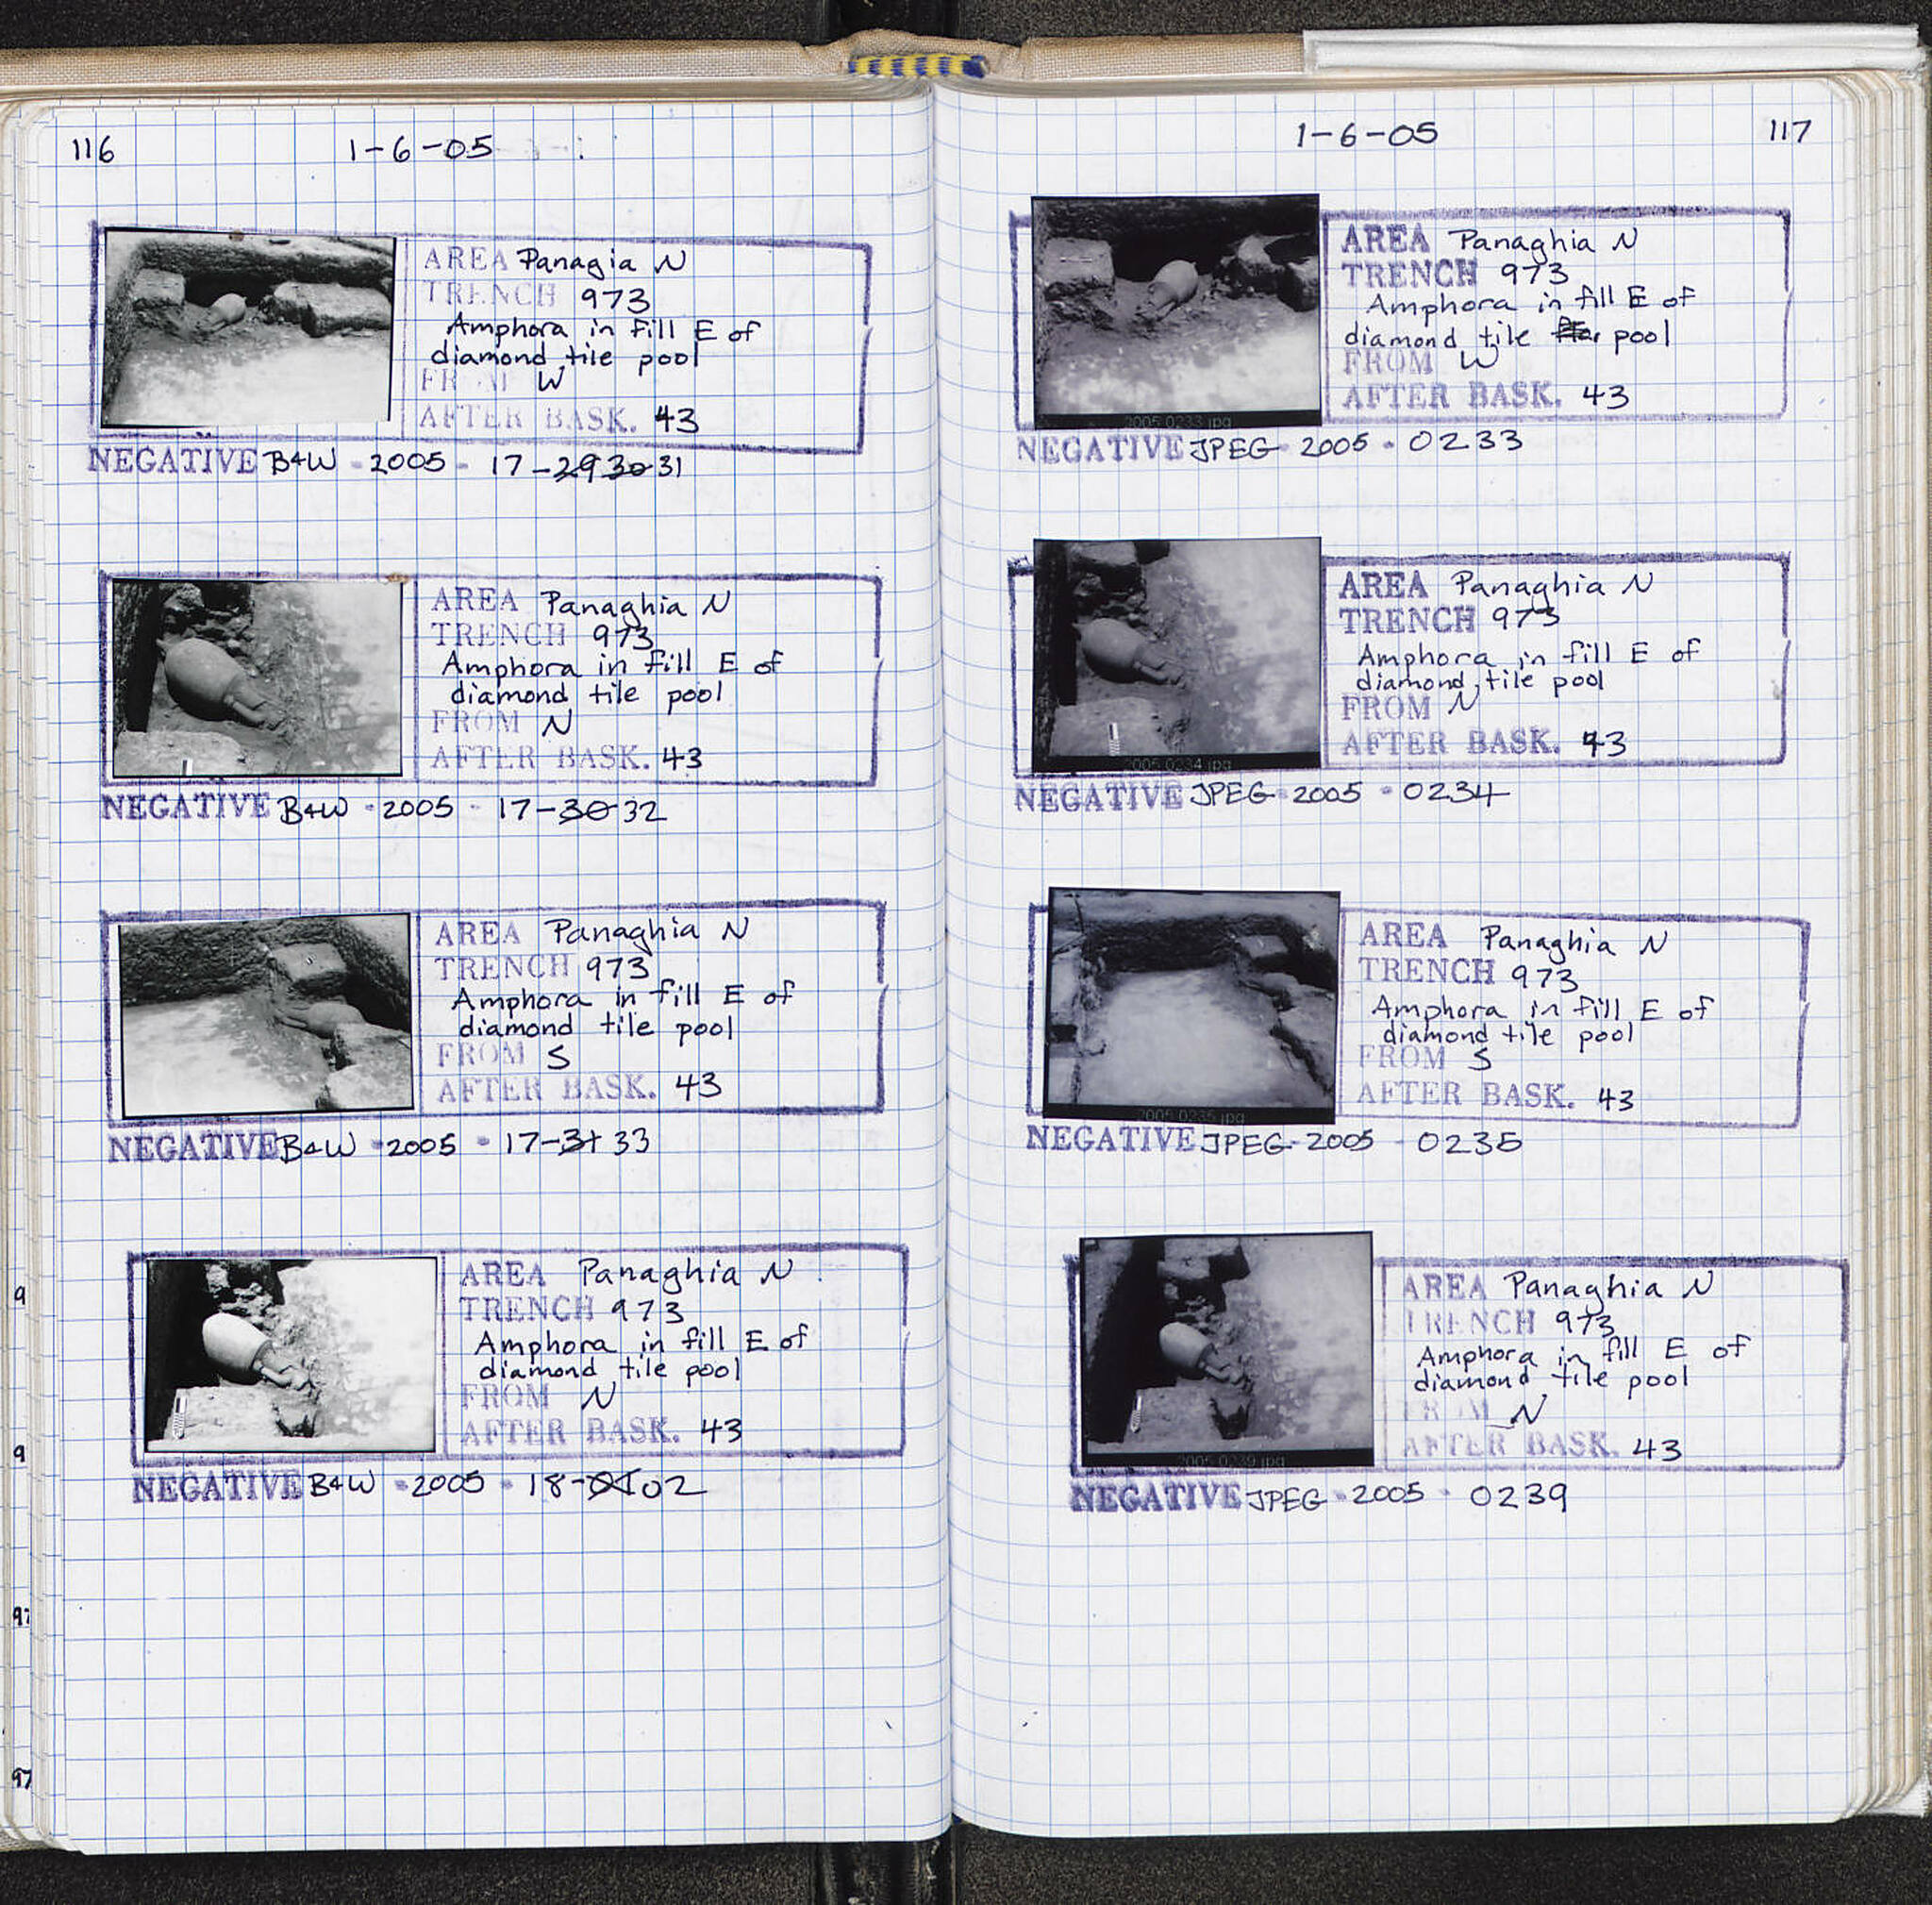 116
1-6-05
AREA Panagia N
TRENCH 973
Amphora in fill E of
diamond tile pool
FROM W
AFTER BASK. 43
NEGATIVE B&W - 2005 - 17-29 30 31
AREA Panaghia N
TRENCH 973
Amphora in fill E of
diamond tile pool
FROM N
AFTER BASK. 43
NEGATIVE B&W - 2005 - 17-30 32
AREA Panaghia N
TRENCH 973
Amphora in fill E of
diamond tile pool
FROM S
AFTER BASK. 43
NEGATIVE B&W - 2005 - 17-31 33
AREA Panaghia N
TRENCH 973
Amphora in fill E of
diamond tile pool
FROM N
AFTER BASK. 43
NEGATIVE B&W - 2005 - 18-01 02
1-6-05
117
AREA Panaghia N
TRENCH 973
Amphora in fill E of
diamond tile pool
FROM W
AFTER BASK. 43
2005 0233.jpg
NEGATIVE JPEG - 2005 - 0233
AREA Panaghia N
TRENCH 973
Amphora in fill E of
diamond tile pool
FROM N
AFTER BASK. 43
2005 0234.jpg
NEGATIVE JPEG - 2005 - 0234
AREA Panaghia N
TRENCH 973
Amphora in fill E of
diamond tile pool
FROM S
AFTER BASK. 43
2005 0235.jpg
NEGATIVE JPEG - 2005 - 0235
AREA Panaghia N
TRENCH 973
Amphora in fill E of
diamond tile pool
FROM N
AFTER BASK. 43
2005 0239.jpg
NEGATIVE JPEG - 2005 - 0239